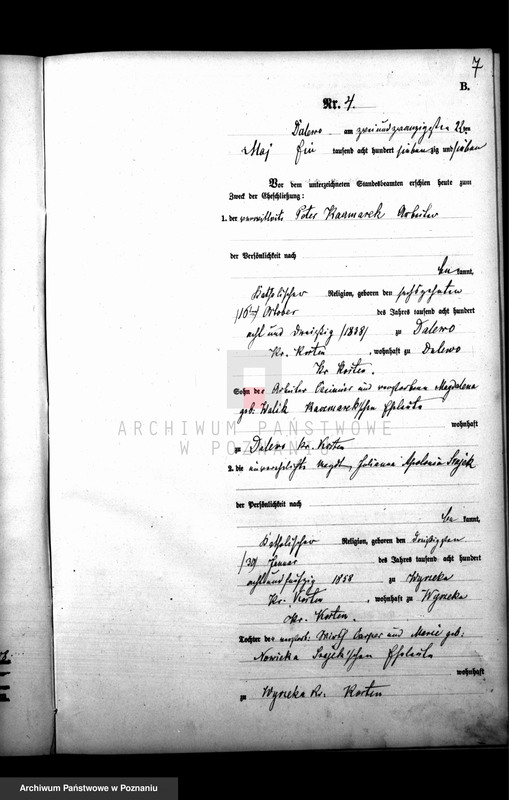 7
B.
Nr. 4.
Dalewo am zwei und zwanzigsten 22ten
Maj Ein tausend acht hundert sieben zig und sieben
Vor dem unterzeichneten Standesbeamten erschien heute zum
Zweck der Eheschließung:
1. der verwittwete Peter Kaczmarek Arbeiter
der Persönlichkeit nach
be kannt,
Katholischer Religion, geboren den sechszehnten
/16/ October des Jahres tausend acht hundert
acht und dreißig /1838/ zu Dalewo
Kr. Kosten, wohnhaft zu Dalewo
Kr. Kosten.
Sohn der Arbeiter Casimir und verstorbene Magdalena
geb. Walik Kaczmarek'schen Eheleute
wohnhaft
ARCHIWUM PAŃSTWOWE
W POZNANIU
zu Dalewo Kr. Kosten
2. die unverehelichte Magd Julianna Apolonia
der Persönlichkeit nach
be kannt,
Katholischer Religion, geboren den dreißigsten
/30/ Januar des Jahres tausend acht hundert
acht und fünfzig 1858 zu Wyrzeka
Kr. Kosten, wohnhaft zu Wyrzeka
Kr. Kosten.
Tochter der verstorb. Wirth Casper und Marie geb.
Nowicka Eheleute
wohnhaft
zu Wyrzeka Kr. Kosten
Archiwum Państwowe w Poznaniu